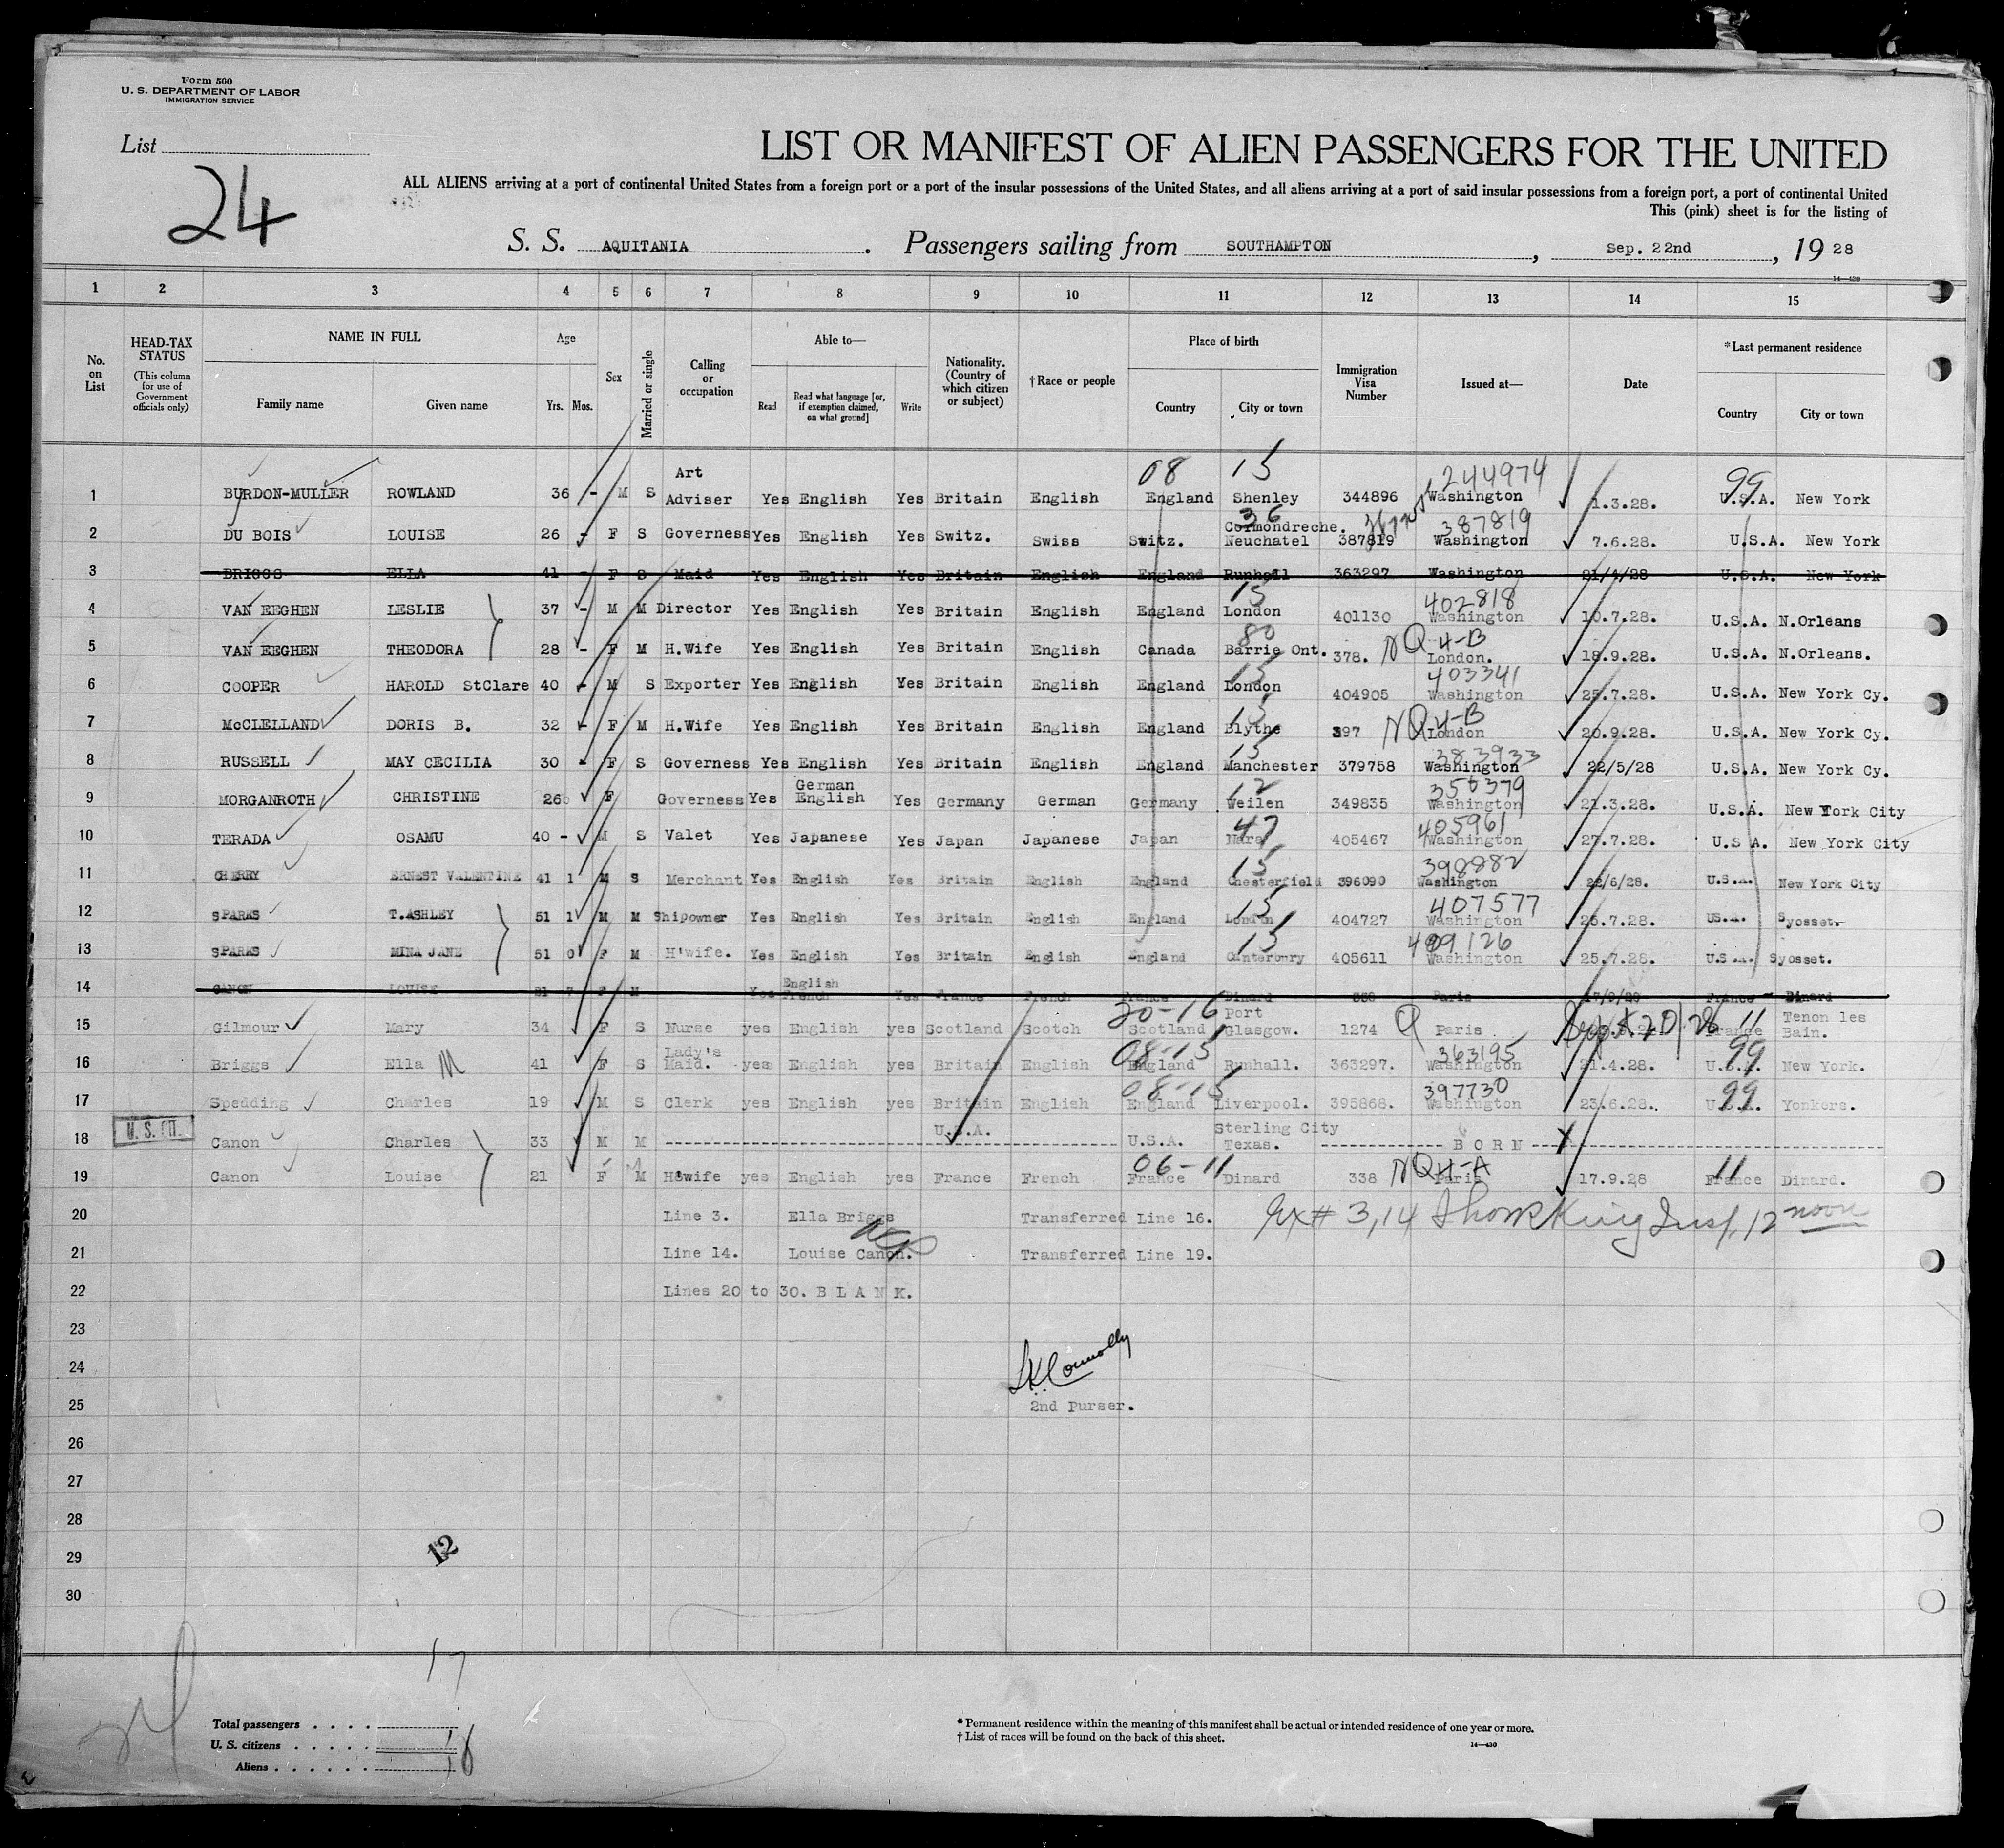 Form 500
U. S. DEPARTMENT OF LABOR
IMMIGRATION SERVICE
List
24
LIST OR MANIFEST OF ALIEN PASSENGERS FOR THE UNITED
ALL ALIENS arriving at a port of continental United States from a foreign port or a port of the insular possessions of the United States, and all aliens arriving at a port of said insular possessions from a foreign port, a port of continental United
This (pink) sheet is for the listing of
S. S. AQUITANIA . Passengers sailing from SOUTHAMPTON , Sep. 22nd , 19 28
14-430
1 2 3 4 5 6 7 8 9 10 11 12 13 14 15
No. on List
HEAD-TAX STATUS (This column for use of Government officials only)
NAME IN FULL
Family name Given name
Age
Yrs. Mos.
Sex
Married or single
Calling or occupation
Able to—
Read Read what language [or, if exemption claimed, on what ground] Write
Nationality. (Country of which citizen or subject)
†Race or people
Place of birth
Country City or town
Immigration Visa Number
Issued at—
Date
*Last permanent residence
Country City or town
08 15 244974 99
1 BURDON-MULLER ROWLAND 36 - M S Art Adviser Yes English Yes Britain English England Shenley 344896 Washington 1.3.28. U.S.A. New York
36 387819
2 DU BOIS LOUISE 26 - F S Governess Yes English Yes Switz. Swiss Switz. Cormondreche. Neuchatel 387819 Washington 7.6.28. U.S.A. New York
3 BRIGGS ELLA 41 - F S Maid Yes English Yes Britain English England Runhall 363297 Washington 21/4/28 U.S.A. New York
15 402818
4 VAN EEGHEN LESLIE 37 - M M Director Yes English Yes Britain English England London 401130 Washington 10.7.28. U.S.A. N.Orleans
80 NQ 4-B
5 VAN EEGHEN THEODORA 28 - F M H.Wife Yes English Yes Britain English Canada Barrie Ont. 378. London. 18.9.28. U.S.A. N.Orleans.
15 403341
6 COOPER HAROLD StClare 40 - M S Exporter Yes English Yes Britain English England London 404905 Washington 25.7.28. U.S.A. New York Cy.
15 NQ 4-B
7 McCLELLAND DORIS B. 32 - F M H.Wife Yes English Yes Britain English England Blythe 397 London 20.9.28. U.S.A. New York Cy.
15 383933
8 RUSSELL MAY CECILIA 30 - F S Governess Yes English Yes Britain English England Manchester 379758 Washington 22/5/28 U.S.A. New York Cy.
12 350379
9 MORGANROTH CHRISTINE 26 F Governess Yes German English Yes Germany German Germany Weilen 349835 Washington 21.3.28. U.S.A. New York City
47 405961
10 TERADA OSAMU 40 - M S Valet Yes Japanese Yes Japan Japanese Japan Nara 405467 Washington 27.7.28. U.S A. New York City
15 390882
11 CHERRY ERNEST VALENTINE 41 1 M S Merchant Yes English Yes Britain English England Chesterfield 396090 Washington 22/6/28. U.S.A. New York City
15 407577
12 SPARKS T.ASHLEY 51 1 M M Shipowner Yes English Yes Britain English England London 404727 Washington 25.7.28. US.A. Syosset.
15 409126
13 SPARKS MINA JANE 51 0 F M H'wife. Yes English Yes Britain English England Canterbury 405611 Washington 25.7.28. U.S.A. Syosset.
14 CANON LOUISE 21 7 F M Yes English French Yes France French France Dinard 338 Paris 17/9/28 France - Dinard
20-16 Q 11
15 Gilmour Mary 34 F S Nurse yes English yes Scotland Scotch Scotland Port Glasgow. 1274 Paris France Tenon les Bain.
08-15 363195 99
16 Briggs Ella 41 F S Lady's Maid. yes English yes Britain English England Runhall. 363297. Washington 21.4.28. U.S.A. New York.
08-15 397730 99
17 Spedding Charles 19 M S Clerk yes English yes Britain English England Liverpool. 395868. Washington 23.6.28. U.S.A. Yonkers.
U. S. CIT.
18 Canon Charles 33 M M U.S.A. U.S.A. Sterling City Texas. BORN
06-11 NQ 4-A 11
19 Canon Louise 21 F M H'wife yes English yes France French France Dinard 338 Paris 17.9.28 France Dinard.
20 Line 3. Ella Briggs Transferred Line 16. Ex# 3,14 King Insp. 12 noon
21 Line 14. Louise Canon. Transferred Line 19.
22 Lines 20 to 30. B L A N K.
23
24 Connolly
25 2nd Purser.
26
27
28
29
12
30
17
Total passengers
U. S. citizens
18
Aliens
24
* Permanent residence within the meaning of this manifest shall be actual or intended residence of one year or more.
† List of races will be found on the back of this sheet.
14-430